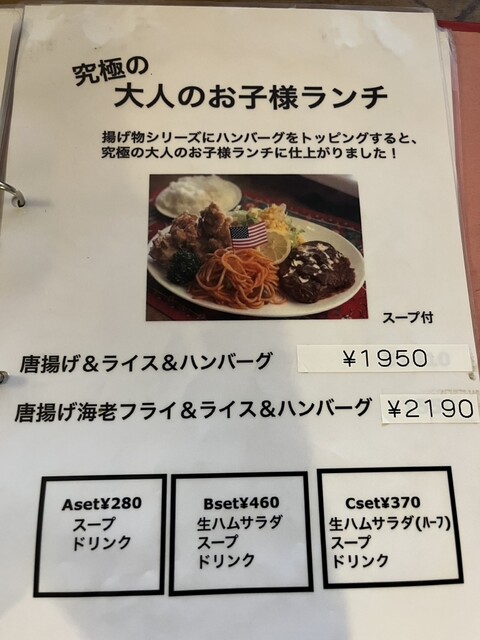 究極の
大人のお子様ランチ
揚げ物シリーズにハンバーグをトッピングすると、
究極の大人のお子様ランチに仕上がりました！
スープ付
唐揚げ＆ライス＆ハンバーグ ¥1950
唐揚げ海老フライ＆ライス＆ハンバーグ ¥2190
Aset¥280
スープ
ドリンク
Bset¥460
生ハムサラダ
スープ
ドリンク
Cset¥370
生ハムサラダ(ﾊｰﾌ)
スープ
ドリンク